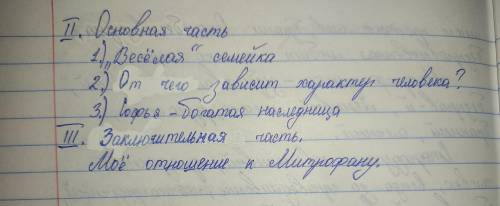 II. Основная часть
1.) „Весёлая" семейка
2.) От чего зависит характер человека?
3.) Софья - богатая наследница
III. Заключительная часть.
Моё отношение к Митрофану.